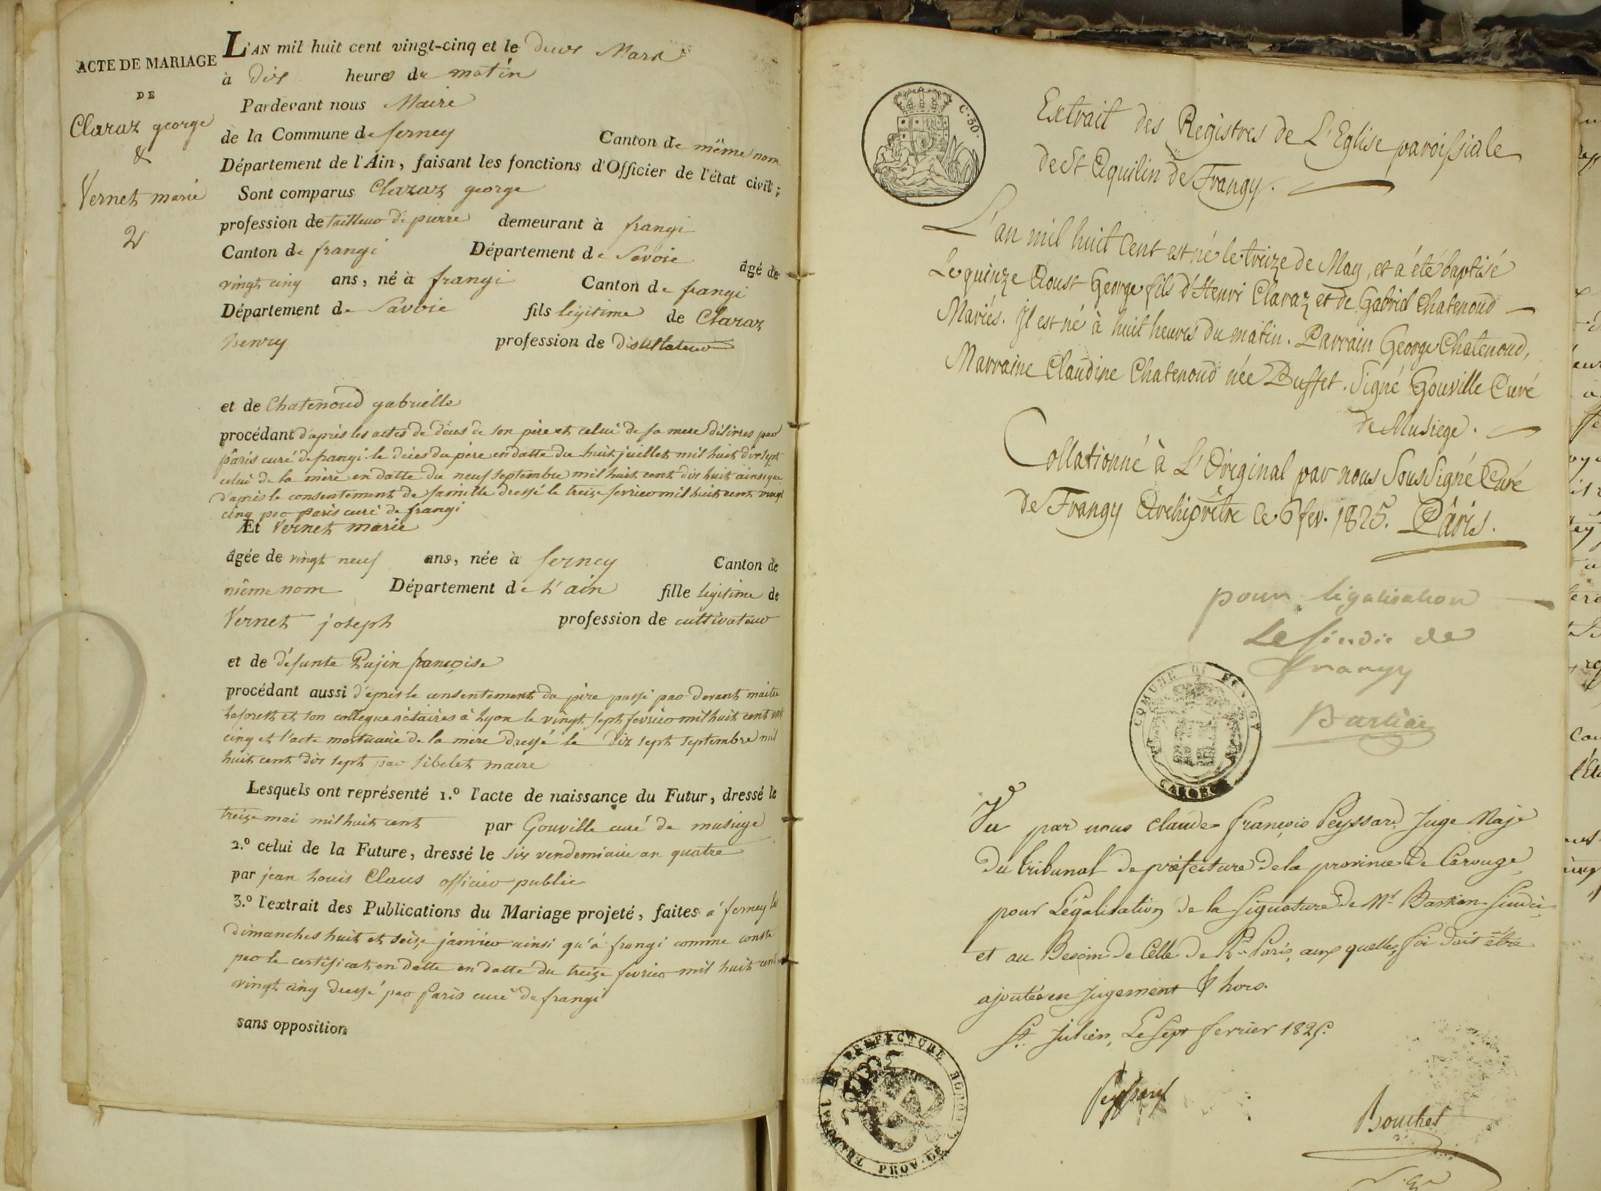 ACTE DE MARIAGE
DE
Claraz george
&
Vernet marie
2
L'AN mil huit cent vingt-cinq et le deux Mars
à dix heures du matin
Pardevant nous Maire
de la Commune de ferney Canton de même nom
Département de l'Ain, faisant les fonctions d'Officier de l'état civil;
Sont comparus Claraz george
profession de tailleur de pierre demeurant à frangi
Canton de frangi Département de Savoie âgé de
vingt cinq ans, né à frangi Canton de frangi
Département de Savoie fils légitime de Claraz
henry profession de distillateur
et de Chatenoud gabrielle
procédant d'après les actes de décès de son père et celui de sa mere délivres par
paris curé de frangi le décès du père en datte du huit juillet mil huit dix sept
celui de la mère en datte du neuf septembre mil huit cent dix huit ainsi que
d'après le consentement de famille dressé le treize fevrier mil huit cent vingt
cinq par paris curé de frangi
Et Vernet marie
âgée de vingt neuf ans, née à ferney Canton de
même nom Département de L'ain fille légitime de
Vernet joseph profession de cultivateur
et de défunte françoise
procédant aussi d'après le consentement du père passé par devant maitre
et son collegue notaires à Lyon le vingt sept fevrier mil huit cent vingt
cinq et l'acte mortuaire de la mère dressé le dix sept septembre mil
huit cent dix sept par maire
Lesquels ont représenté 1.º l'acte de naissance du Futur, dressé le
treize mai mil huit cent par Gouville curé de musiege
2.º celui de la Future, dressé le six vendemiaire an quatre
par jean Louis Claus officier public
3.º l'extrait des Publications du Mariage projeté, faites à ferney les
dimanches huit et seize janvier ainsi qu'à frangi comme conste
par le certificat en datte en datte du treize fevrier mil huit cent
vingt cinq dressé par paris curé de frangi
sans opposition
C. 50.
Extrait des Registres de L'Eglise paroissiale
de St Aquilin de Frangy.
L'an mil huit Cent est né le treize de May, et a été baptisé
Le quinze Aoust George fils d'Henri Claraz et de Gabriel Chatenoud
Mariés. Il est né à huit heures du matin. Parrain George Chatenoud,
Marraine Claudine Chatenoud née Buffet. Signé Gouville Curé
de Musiege.
Collationné à L'Original par nous Soussigné Curé
de Frangy Archiprêtre ce 6 fev. 1825. Pâris.
pour légalisation
Le Sindic de
frangy
COMUNE DE FRANGY
Vu par nous Claude françois Peyssard Juge Maje
du tribunal de préfecture de la province de Carouge,
pour Légalisation de la signature de Mr Sindic
et au Besoin de Celle de Rd Paris, aux quelles foi doit être
ajoutée en jugement & hors.
St. Julien, Le sept fevrier 1825.
Peyssard
Bouchet
TRIBUNAL DE PREFECTURE PROV. DE